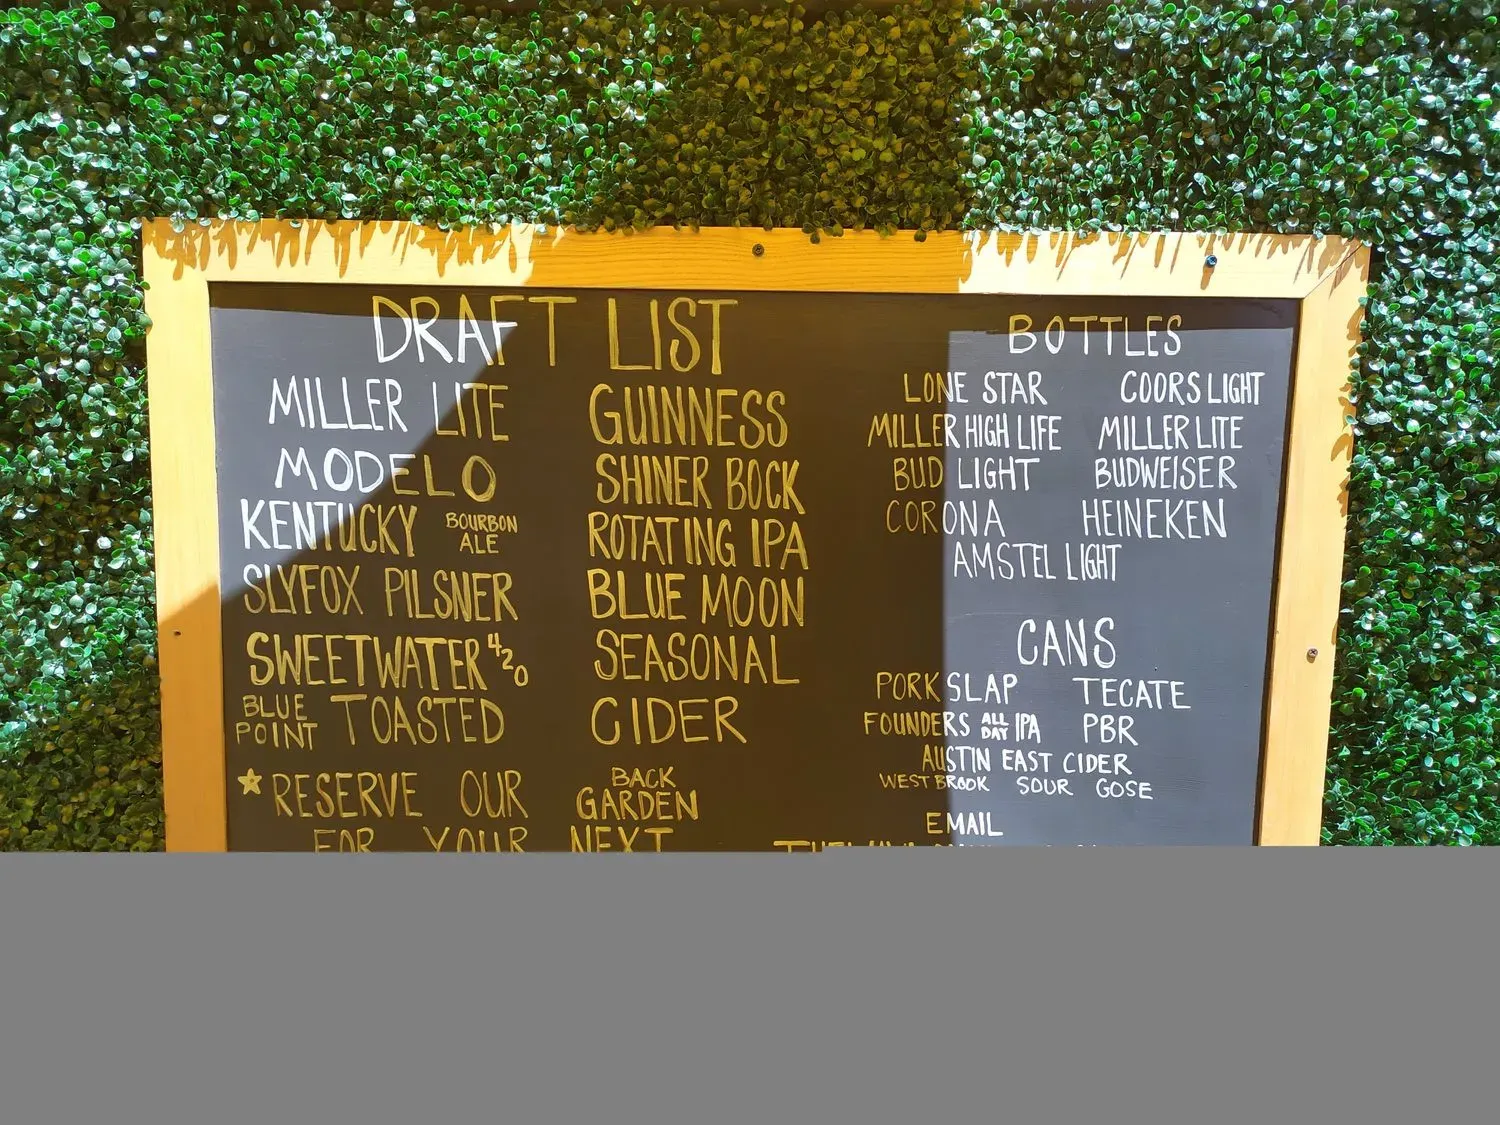 DRAFT LIST
MILLER LITE
MODELO
KENTUCKY BOURBON ALE
SLYFOX PILSNER
SWEETWATER 420
BLUE POINT TOASTED
GUINNESS
SHINER BOCK
ROTATING IPA
BLUE MOON
SEASONAL
CIDER
★ RESERVE OUR BACK GARDEN
FOR YOUR NEXT
BOTTLES
LONE STAR COORS LIGHT
MILLER HIGH LIFE MILLER LITE
BUD LIGHT BUDWEISER
CORONA HEINEKEN
AMSTEL LIGHT
CANS
PORKSLAP TECATE
FOUNDERS ALL DAY IPA PBR
AUSTIN EAST CIDER
WESTBROOK SOUR GOSE
EMAIL